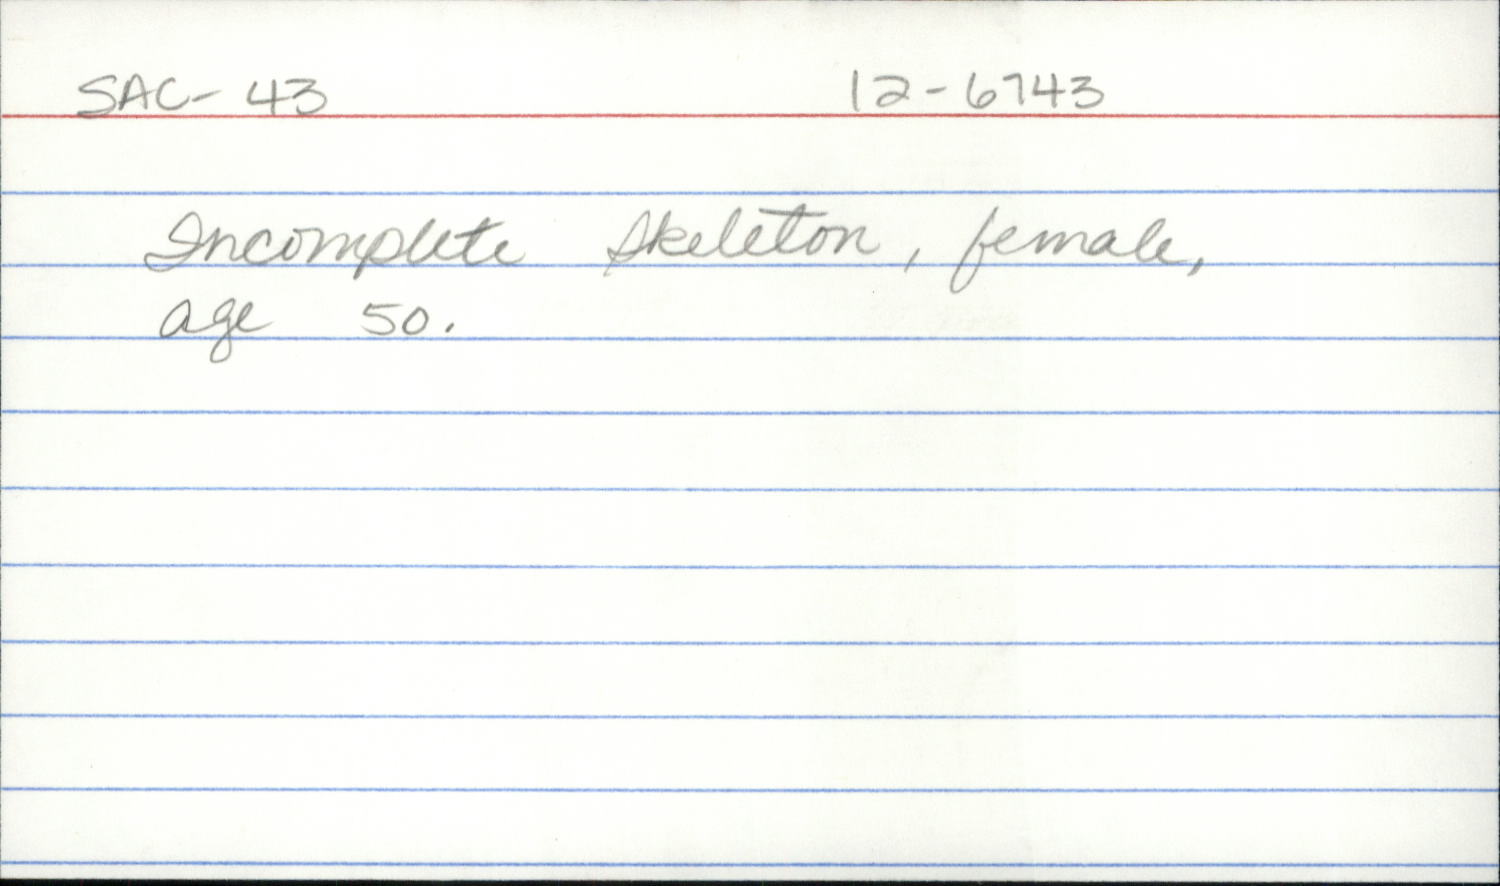 SAC- 43 12-6743
Incomplete skeleton, female,
age 50.